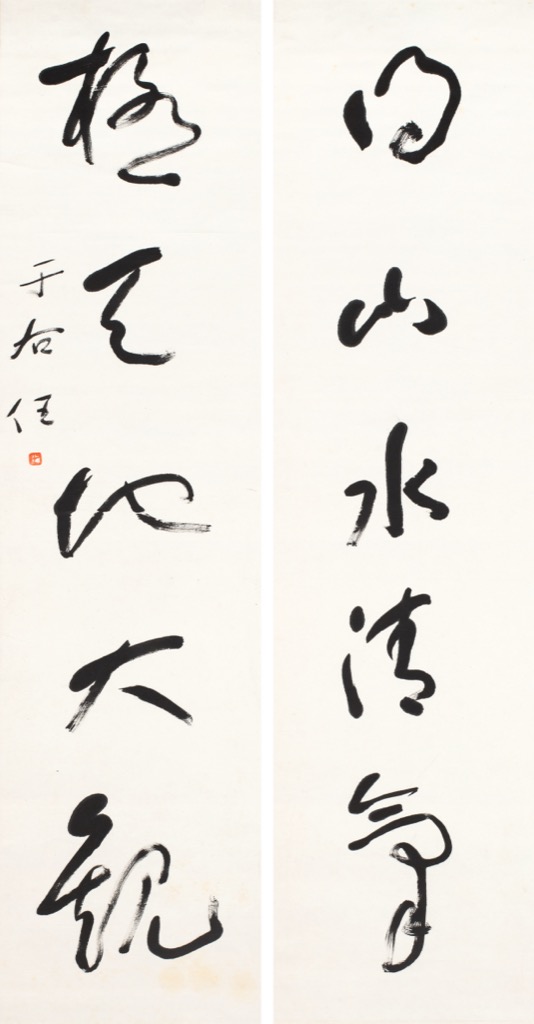 得山水清氣
極天地大觀
于右任